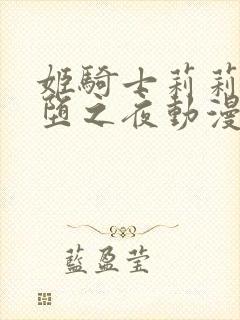 姬騎士莉莉
墮之夜動漫
藍盈莹